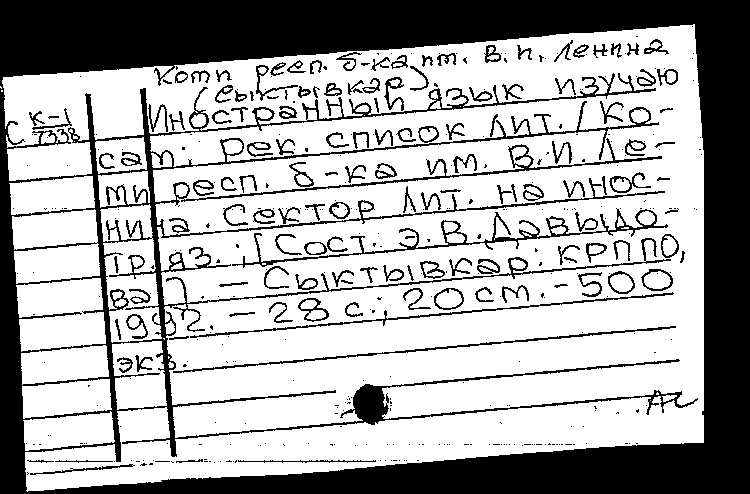 Коми респ. б-ка им. В. И. Ленина
(Сыктывкар).
Иностранный язык изучаю
С К-1
7338
сам: Рек. список лит. / Ко-
ми респ. б-ка им. В.И. Ле-
нина. Сектор лит. на инос-
тр. яз.; [Сост. Э.В. Давыдо-
ва]. – Сыктывкар: КРППО,
1992. – 28 с.; 20 см. – 500
экз.